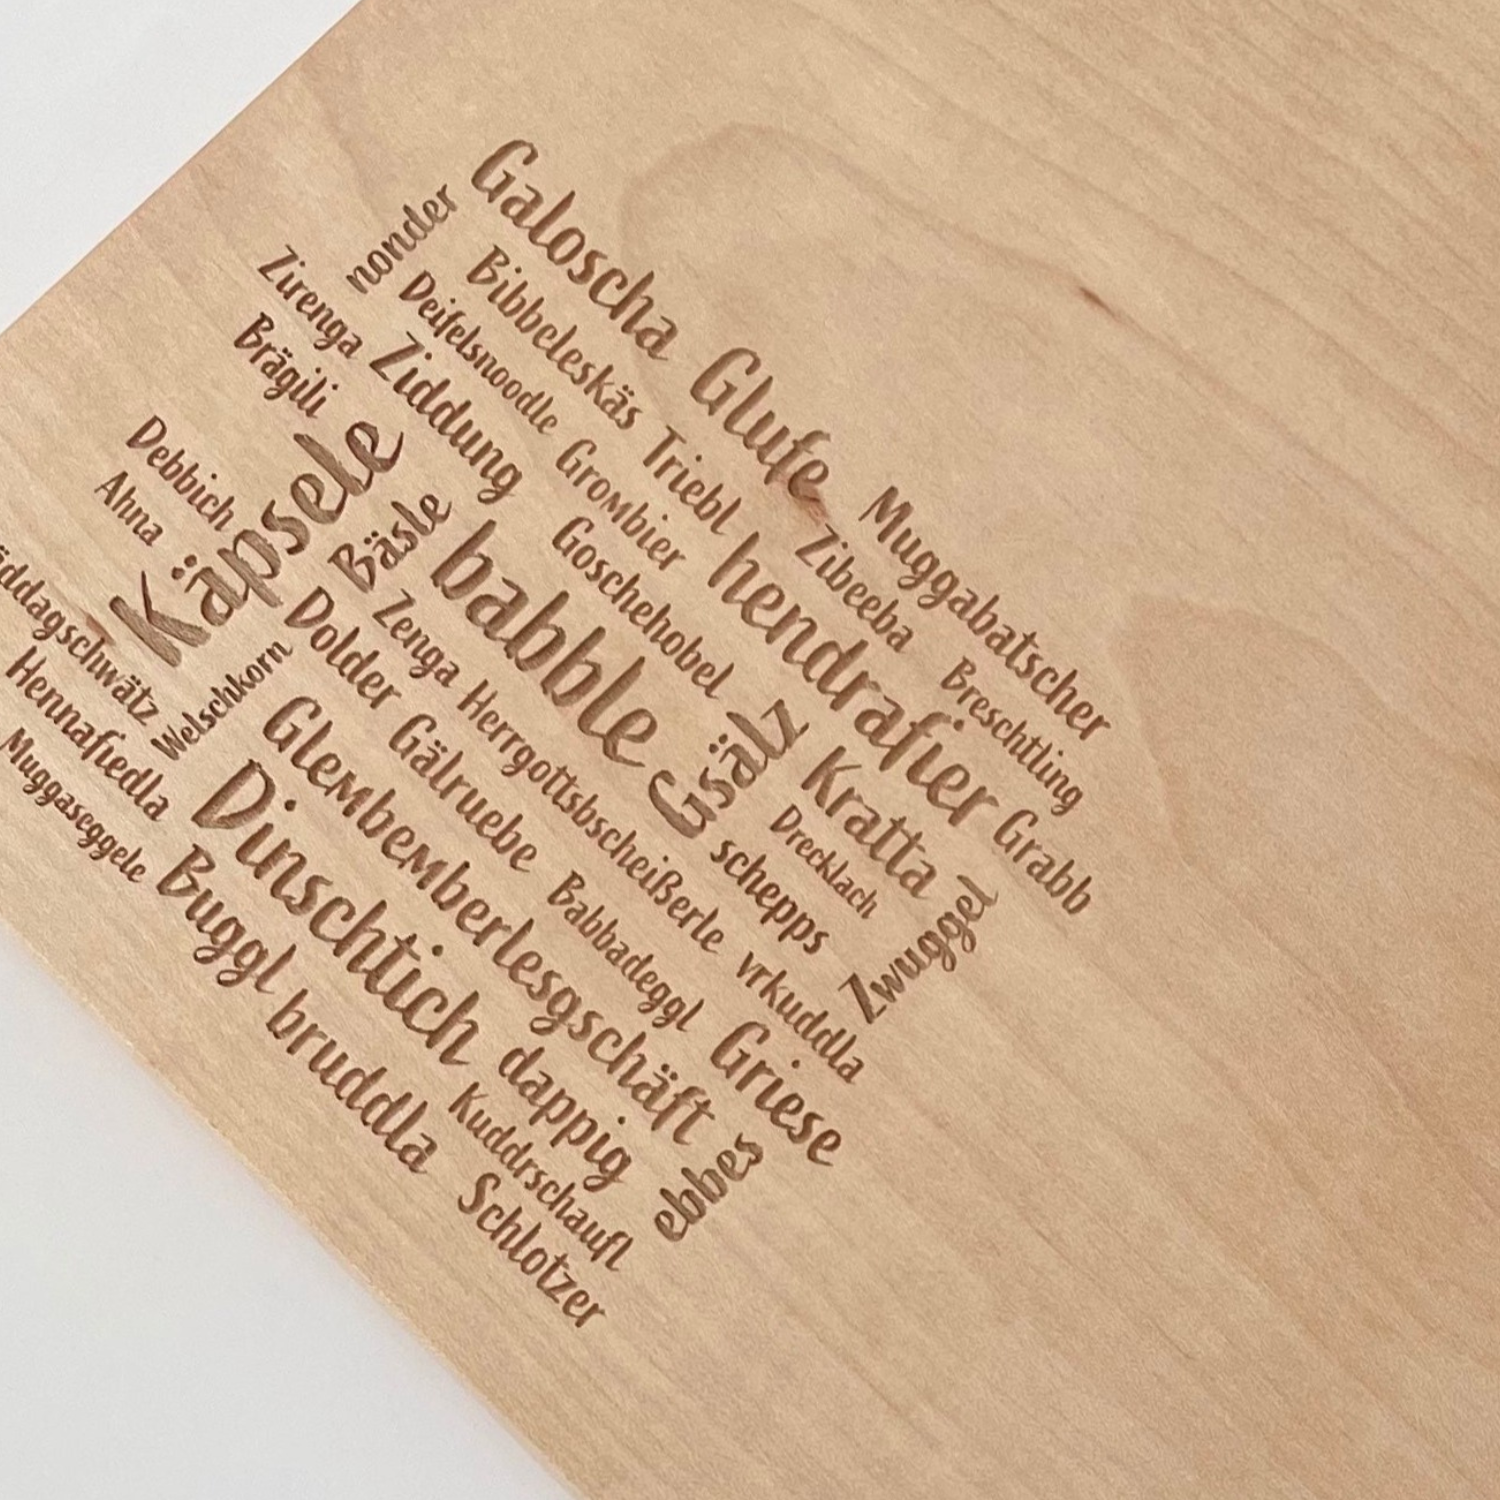 Galoscha
nonder
Bibbeleskäs
Glufe
Zirenga
Deifelsnoodle
Triebl
Muggabatscher
Brägili
Ziddung
Grombier
Zibeeba
Käpsele
Goschehobel
hendrafier
Breschtling
Debbich
Bäsle
babble
Ahna
Zenga
Gsälz
Kratta
Grabb
Dolder
Herrgottsbscheißerle
Drecklach
Welschkorn
Gälruebe
schepps
Zwuggel
Hennafiedla
Glembemberlesgschäft
Babbadeggl
vrkuddla
Muggaseggele
Dinschtich
Griese
Buggl
dappig
ebbes
bruddla
Kuddrschaufl
Schlotzer